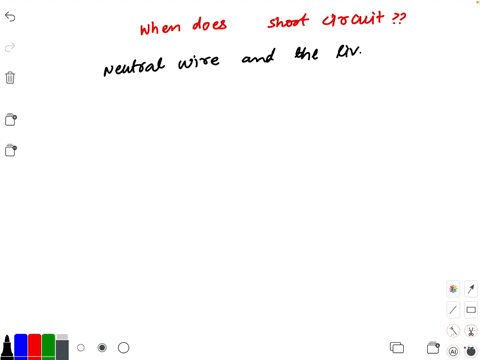 When does short circuit ??
Neutral wire and the Liv.
AI